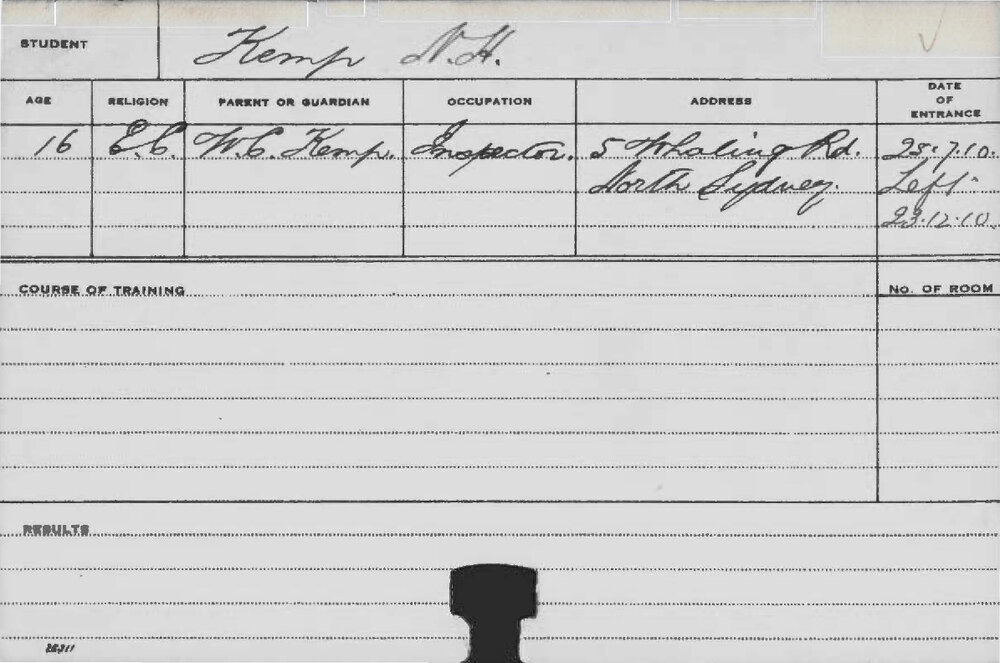 STUDENT Kemp N.H.
AGE RELIGION PARENT OR GUARDIAN OCCUPATION ADDRESS DATE OF ENTRANCE
16 E.C. W.C. Kemp. Inspector. 5 Whaling Rd. 25.7.10.
North Sydney. Left
23.12.10.
COURSE OF TRAINING No. OF ROOM
RESULTS